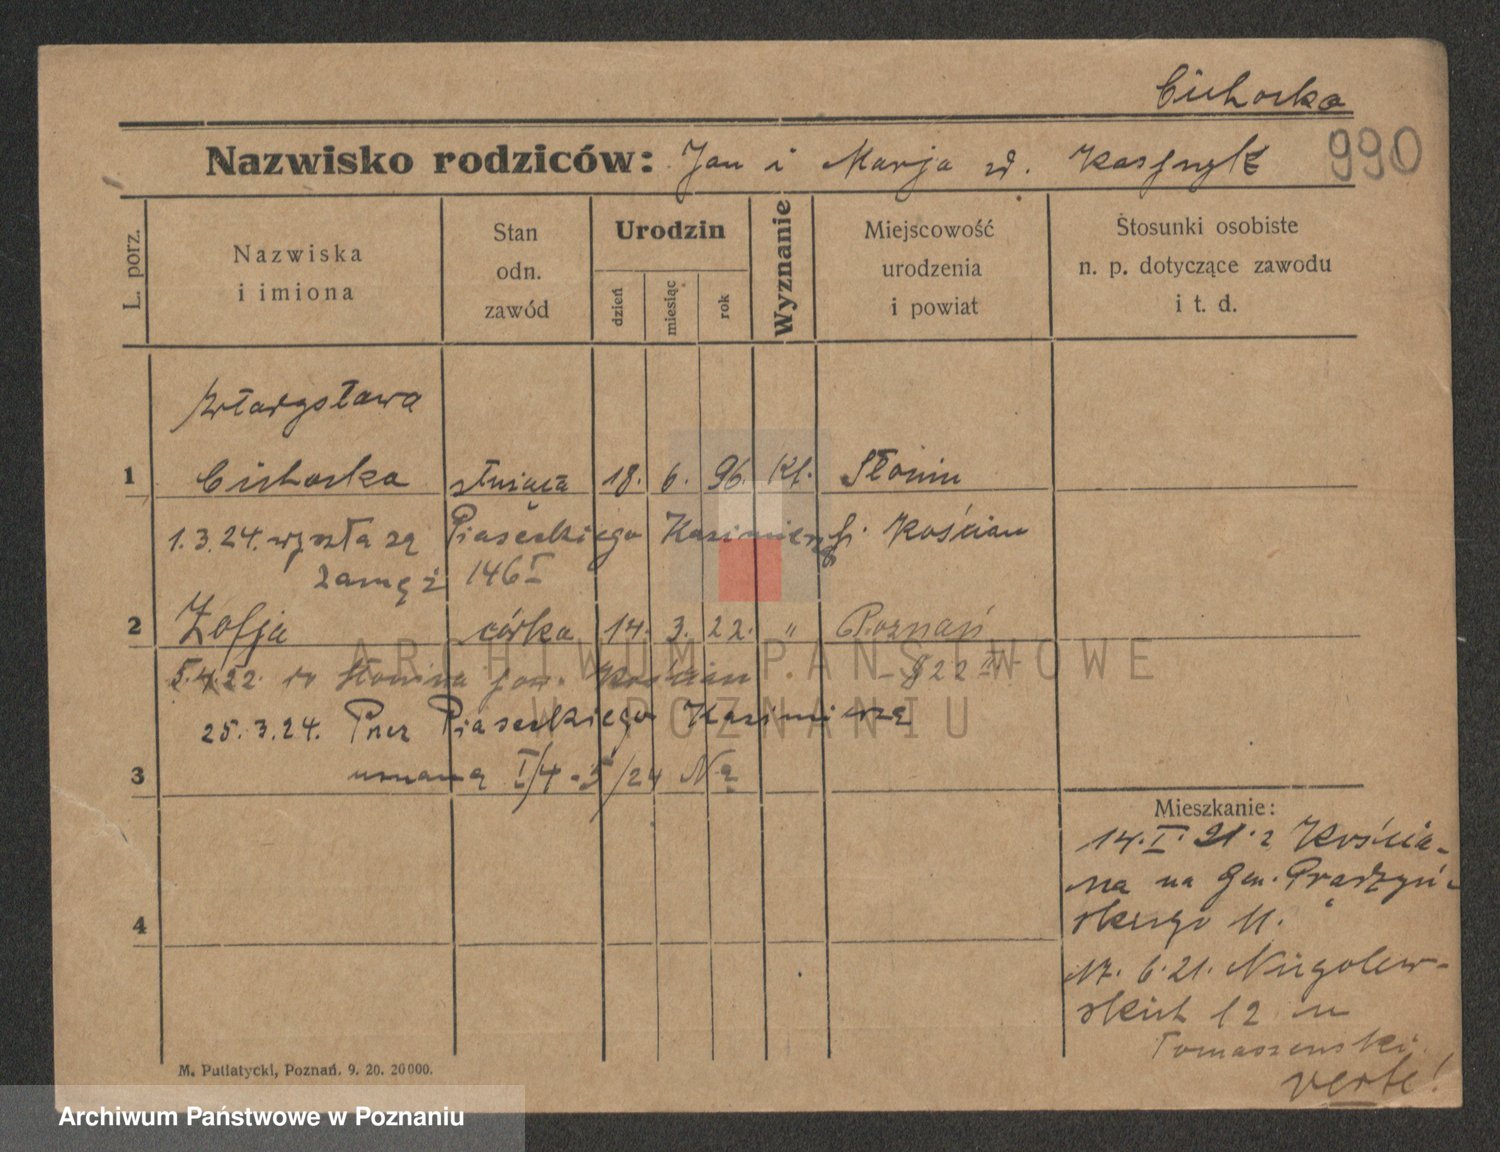 Cichocka
990
Nazwisko rodziców: Jan i Marja zd.
L. porz.
Nazwiska i imiona
Stan odn. zawód
Urodzin
dzień
miesiąc
rok
Wyznanie
Miejscowość urodzenia i powiat
Stosunki osobiste n. p. dotyczące zawodu i t. d.
Władysława
1 Cichocka służąca 18. 6. 96. kt. Słonin
1.3.24. wyszła za Piaseckiego Kazimierza Kościan
zamęż 146 I
2 Zofja córka 14. 3. 22. " Poznań
5.4.22. w Słonina pow. Kościan 822
25.3.24. Prez Piaseckiego Kazimierza
3 uznana I/4-5/24 Na
Mieszkanie:
14.I.21. z Kościa-
na na Gen. Prądzyń-
skiego 11.
4
17. 6. 21. Niegolew-
skich 12 u
Tomaszewski
verte!
M. Putiatycki, Poznań. 9. 20. 20000.
ARCHIWUM PAŃSTWOWE
W POZNANIU
Archiwum Państwowe w Poznaniu